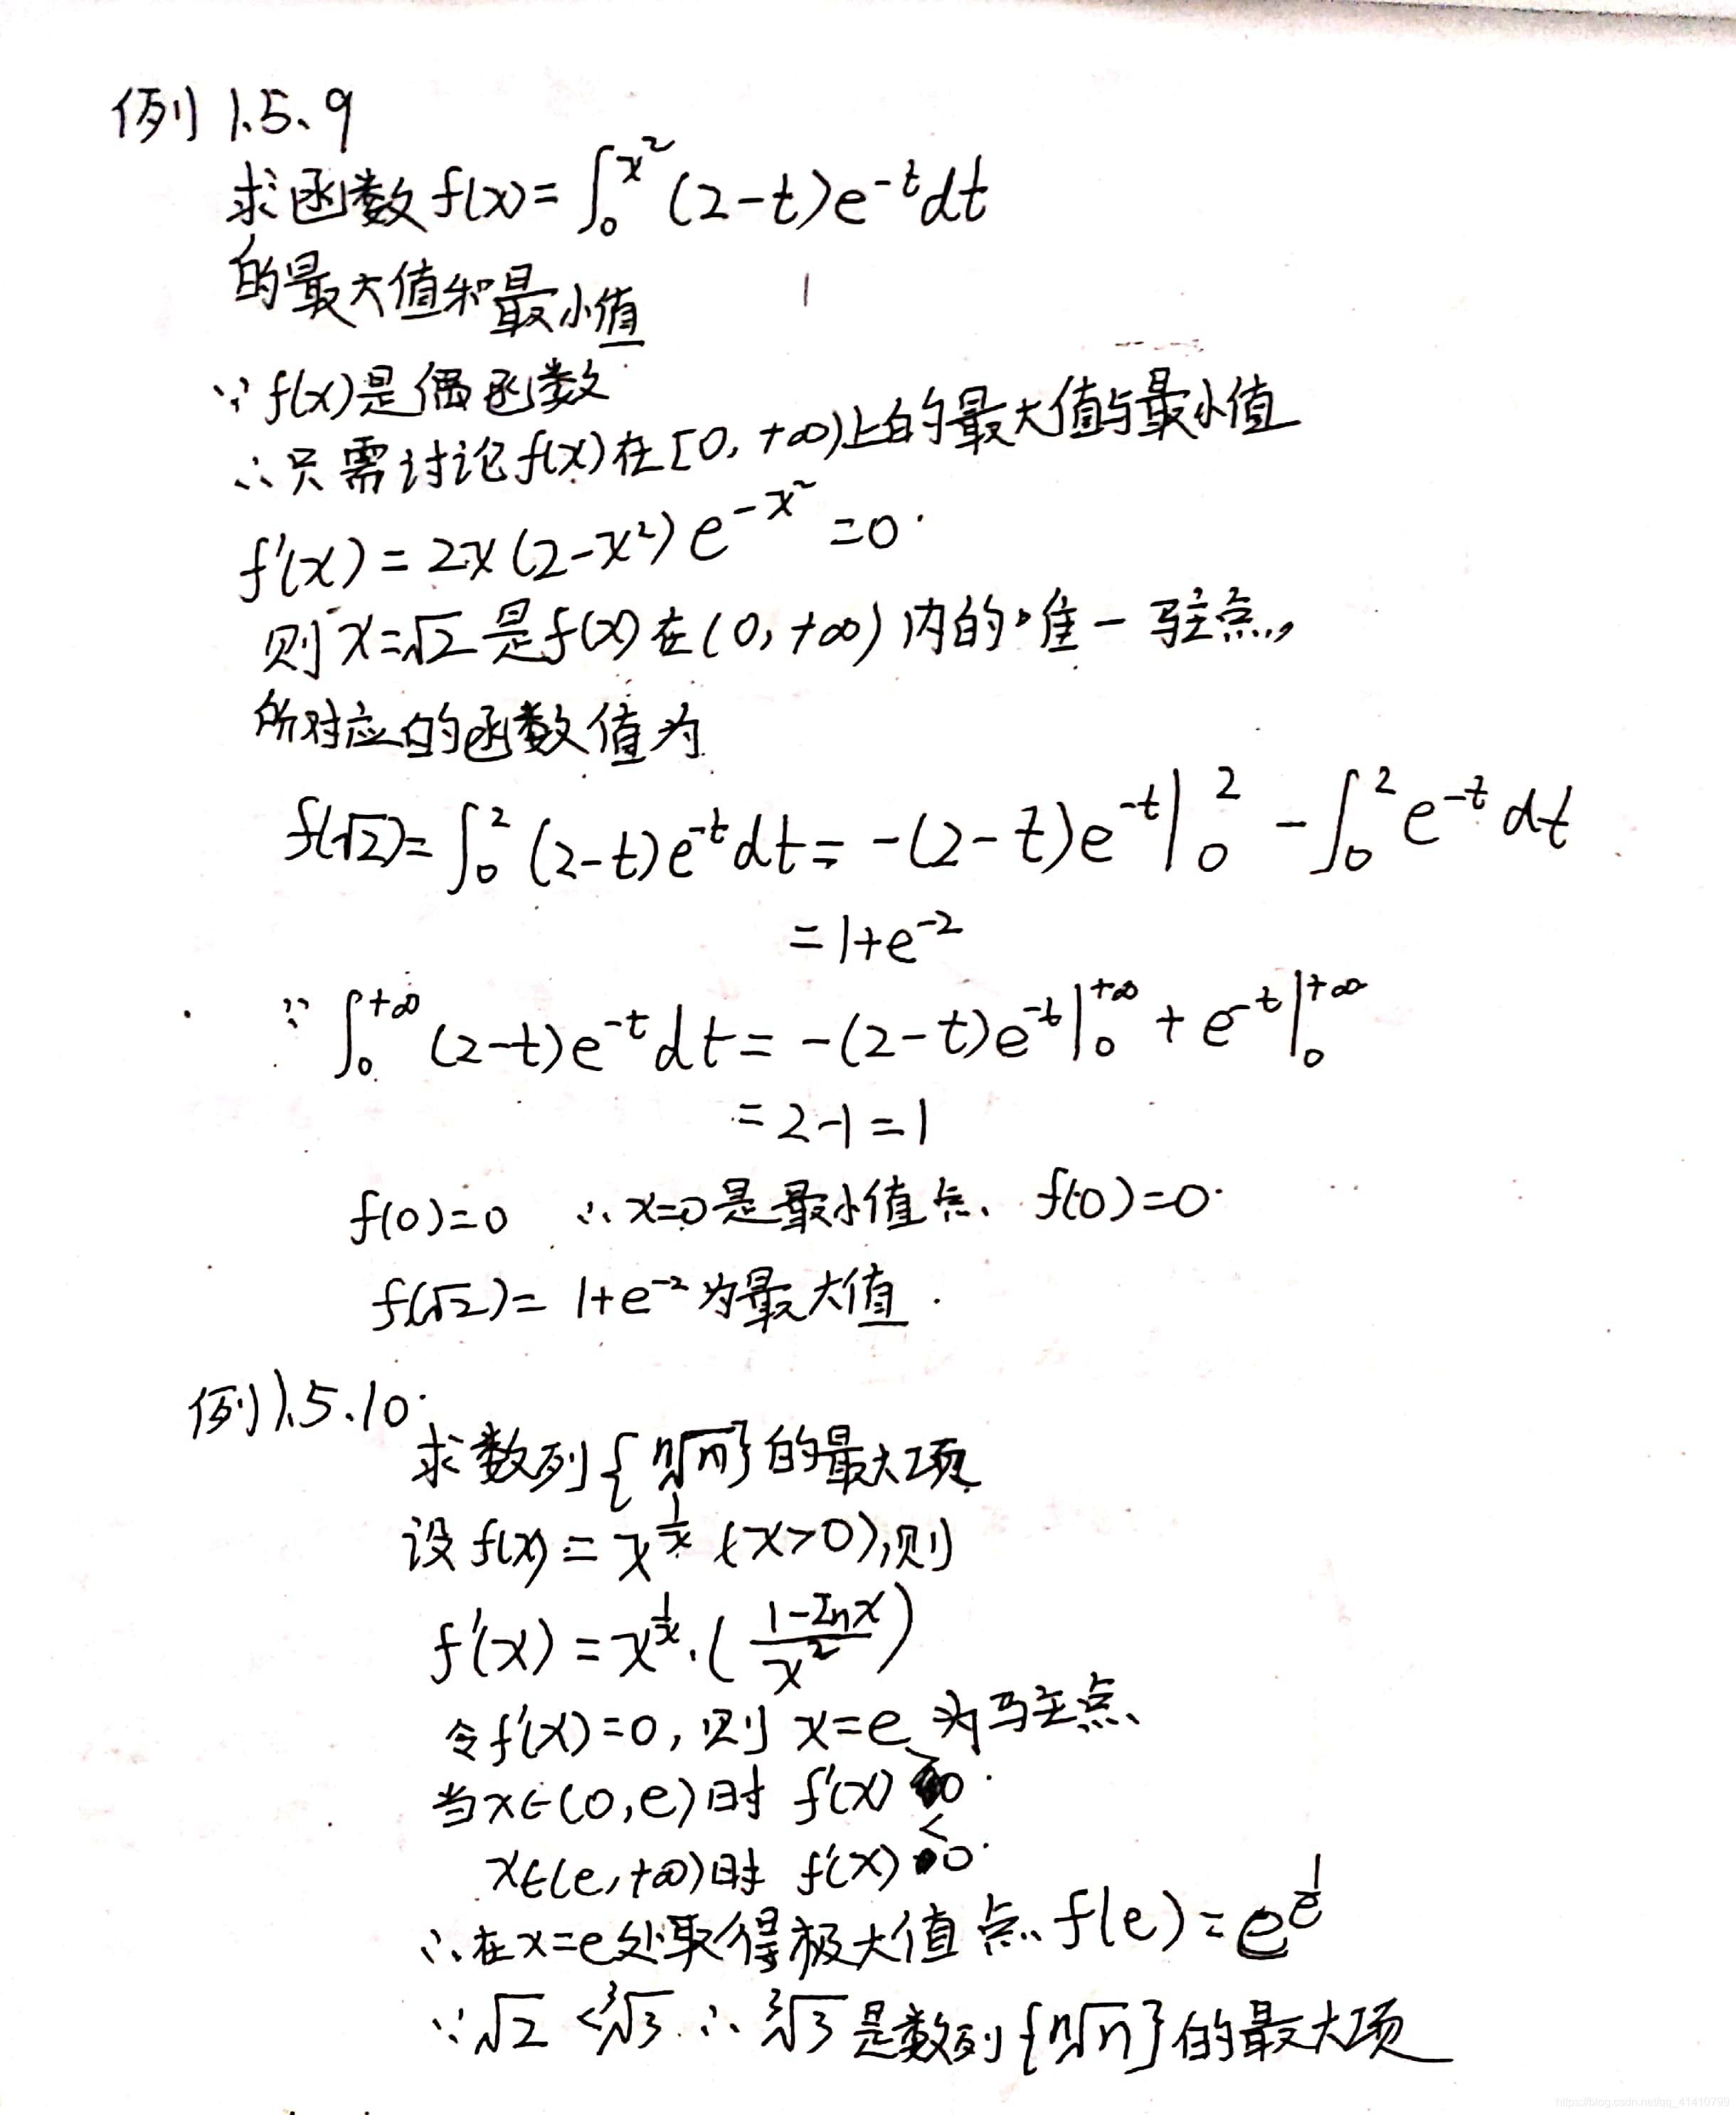 例1.5.9
求函数 f(x)=∫₀^{x²}(2-t)e^{-t}dt
的最大值和最小值
∵ f(x)是偶函数
∴只需讨论f(x)在[0,+∞)上的最大值与最小值
f'(x)=2x(2-x²)e^{-x²}=0.
则 x=√2 是f(x)在(0,+∞)内的唯一驻点,
所对应的函数值为
f(√2)=∫₀²(2-t)e^{-t}dt=-(2-t)e^{-t}|₀²-∫₀²e^{-t}dt
=1+e^{-2}
∵ ∫₀^{+∞}(2-t)e^{-t}dt=-(2-t)e^{-t}|₀^{+∞}+e^{-t}|₀^{+∞}
=2-1=1
f(0)=0 ∴x=0是最小值点、f(0)=0.
f(√2)=1+e^{-2}为最大值.
例1.5.10.
求数列{ⁿ√n}的最大项
设f(x)=x^{1/x}(x>0),则
f'(x)=x^{1/x}·((1-lnx)/x²)
令f'(x)=0,则 x=e 为驻点、
当x∈(0,e)时 f'(x)>0.
x∈(e,+∞)时 f'(x)<0.
∴在x=e处取得极大值点、f(e)=e^{1/e}
∵√2<³√3 ∴ ³√3是数列{ⁿ√n}的最大项
https://blog.csdn.net/qq_41410799